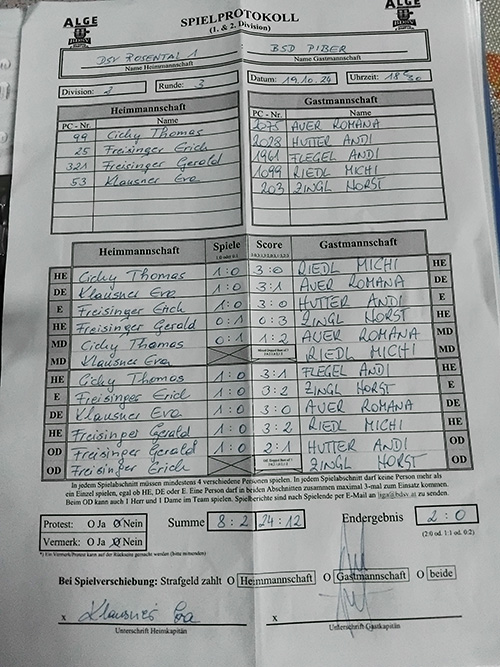 ALGE
SPIELPROTOKOLL
ALGE
(1. & 2. Division)
DSV ROSENTAL 1
BSD PIBER
Name Heimmannschaft
Name Gastmannschaft
Division: 2
Runde: 3
Datum: 19.10.24
Uhrzeit: 18 30
Heimmannschaft
Gastmannschaft
PC - Nr. Name
PC - Nr. Name
99 Cichy Thomas
2075 AUER ROMANA
25 Freisinger Erich
2028 HUTTER ANDI
321 Freisinger Gerald
1961 FLEGEL ANDI
53 Klausner Eva
1099 RIEDL MICHI
203 ZINGL HORST
Heimmannschaft Spiele Score Gastmannschaft
HE Cichy Thomas 1:0 3:0 RIEDL MICHI HE
DE Klausner Eva 1:0 3:1 AUER ROMANA DE
E Freisinger Erich 1:0 3:0 HUTTER ANDI E
HE Freisinger Gerald 0:1 0:3 ZINGL HORST HE
MD Cichy Thomas 0:1 1:2 AUER ROMANA MD
MD Klausner Eva RIEDL MICHI MD
HE Cichy Thomas 1:0 3:1 FLEGEL ANDI HE
E Freisinger Erich 1:0 3:2 ZINGL HORST E
DE Klausner Eva 1:0 3:0 AUER ROMANA DE
HE Freisinger Gerald 1:0 3:2 RIEDL MICHI HE
OD Freisinger Gerald 1:0 2:1 HUTTER ANDI OD
OD Freisinger Erich ZINGL HORST OD
In jedem Spielabschnitt müssen mindestens 4 verschiedene Personen spielen. In jedem Spielabschnitt darf keine Person mehr als
ein Einzel spielen, egal ob HE, DE oder E. Eine Person darf in beiden Abschnitten zusammen maximal 3-mal zum Einsatz kommen.
Beim OD kann auch 1 Herr und 1 Dame im Team spielen. Spielberichte sind nach Spielende per E-Mail an liga@bdsv.at zu senden.
Protest: O Ja O Nein
Summe 8:2 24:12
Endergebnis 2:0
Vermerk: O Ja O Nein
(2:0 od. 1:1 od. 0:2)
*) Ein Vermerk/Protest kann auf der Rückseite gemacht werden (bitte verwenden)
Bei Spielverschiebung: Strafgeld zahlt O Heimmannschaft O Gastmannschaft O beide
x Klausner Eva
x
Unterschrift Heimkapitän
Unterschrift Gastkapitän